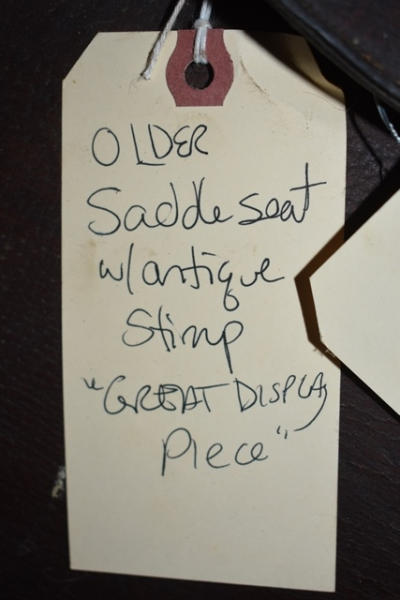 OLDER
Saddle seat
w/antique
Stirrup
"GREAT DISPLAY
Piece"